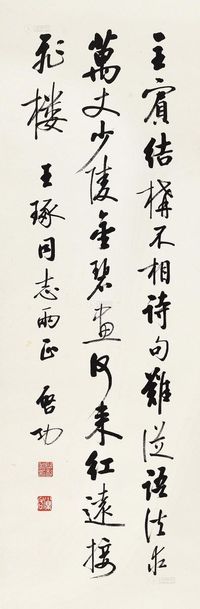 主賓結構不相詩句難從語法求
萬丈少陵金碧畫何來紅遠接
飛樓 王琢同志兩正 啓功